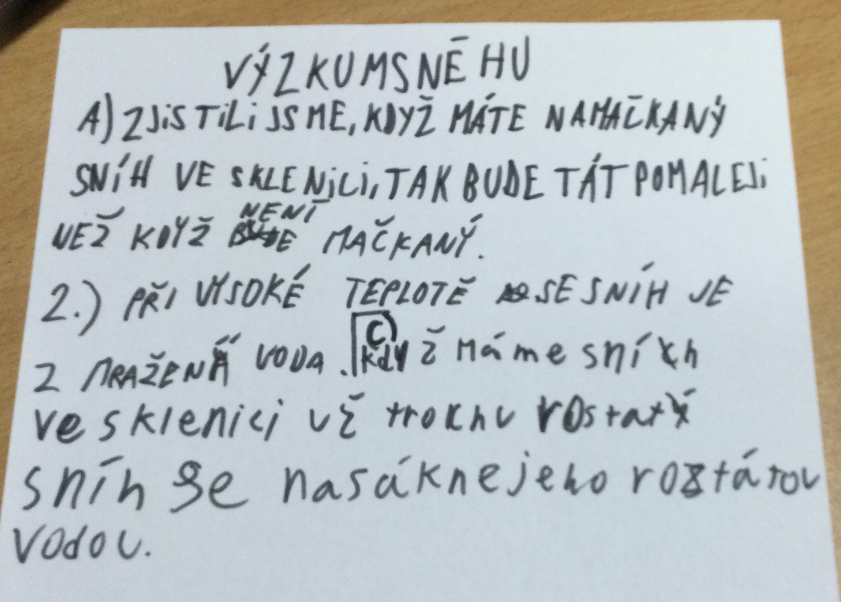 VÝZKUMSNĚHU
A) ZJiSTiLi JSME, KDYŽ MÁTE NAMAČKANÝ
SNÍH VE SKLENiCi, TAK BUDE TÁT POMALEJi
NEŽ KDYŽ NENÍ MAČKANÝ.
2.) PŘI VYSOKÉ TEPLOTĚ SE SNÍH JE
Z MRAŽENÁ VODA. C) když máme sních
ve sklenici už trochu rostatý
sníh se nasákne jeho roztátou
vodou.